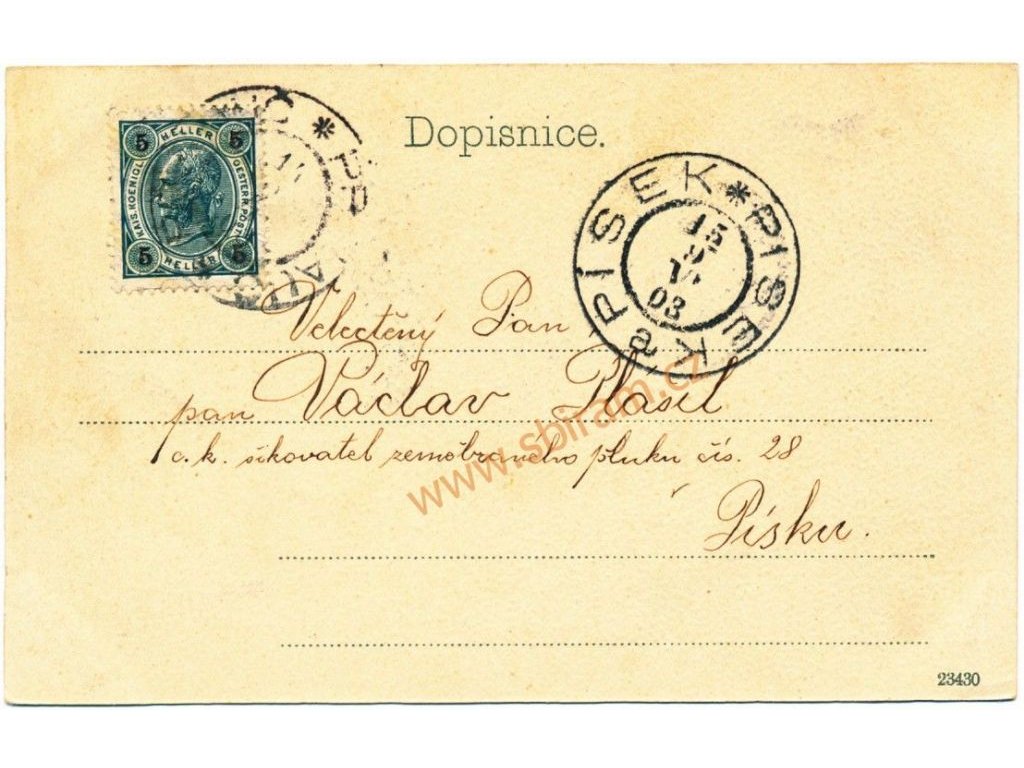 Dopisnice.
5 HELLER 5
KAIS. KOENIGL.
OESTERR. POST.
5 HELLER 5
PÍSEK * PISEK
15
9
03
Velectěný Pan
pan Václav Plasil
c. k. šikovatel zeměbraneho pluku čís. 28
v Písku.
www.sbiram.cz
23430